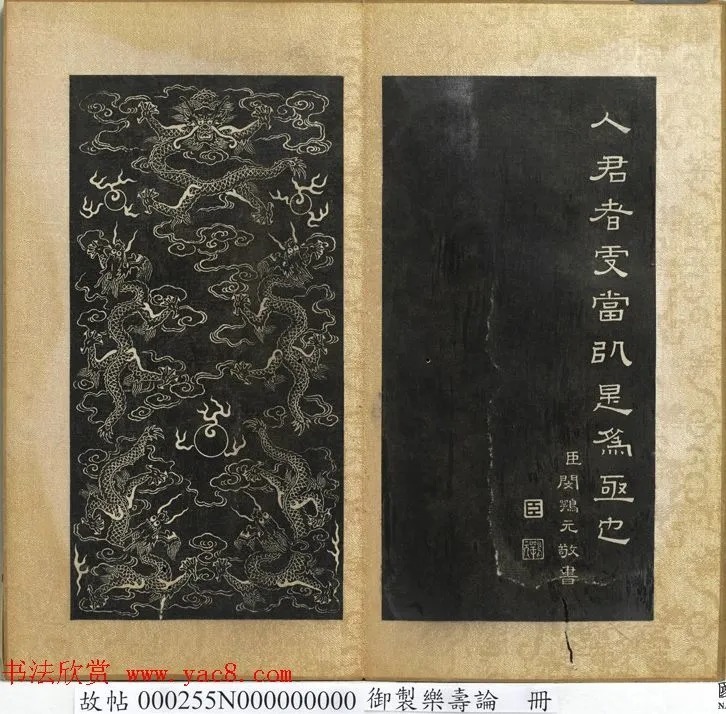 人君者更當㕥是為亟也
臣閔鶚元敬書
臣
书法欣赏 www.yac8.com
故帖 000255N000000000 御製樂壽論 冊